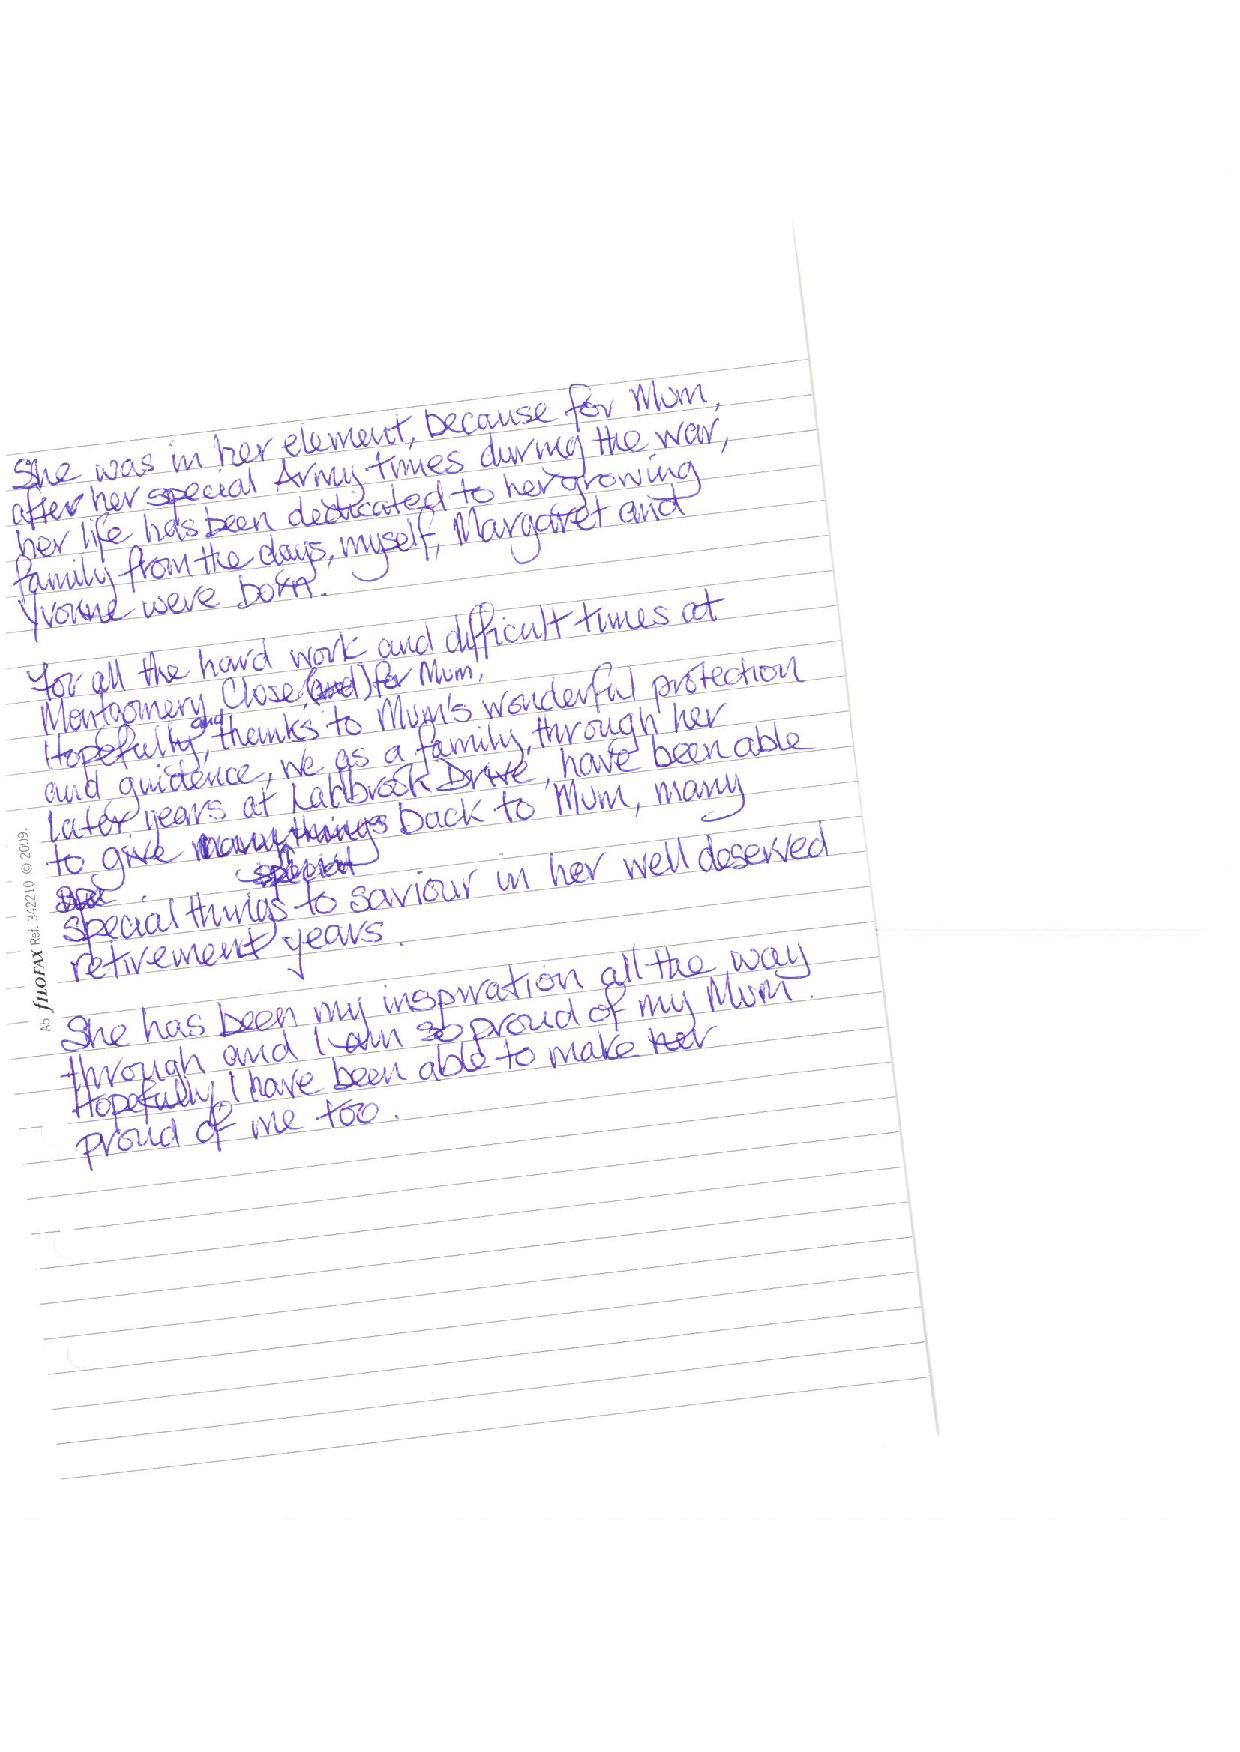 She was in her element, because for Mum,
after her special Army times during the war,
her life has been dedicated to her growing
family from the days, myself, Margaret and
Yvonne were born.
For all the hard work and difficult times at
Montgomery Close, (and) for Mum,
Hopefully, and, thanks to Mum's wonderful protection
and guidence, we as a family, through her
later years at Drive, have been able
to give many things back to Mum, many
special
special things to saviour in her well deserved
retirement years.
She has been my inspiration all the way
through and I am so proud of my Mum.
Hopefully I have been able to make her
proud of me too.
A5 FILOFAX Ref. 342210 © 2009.